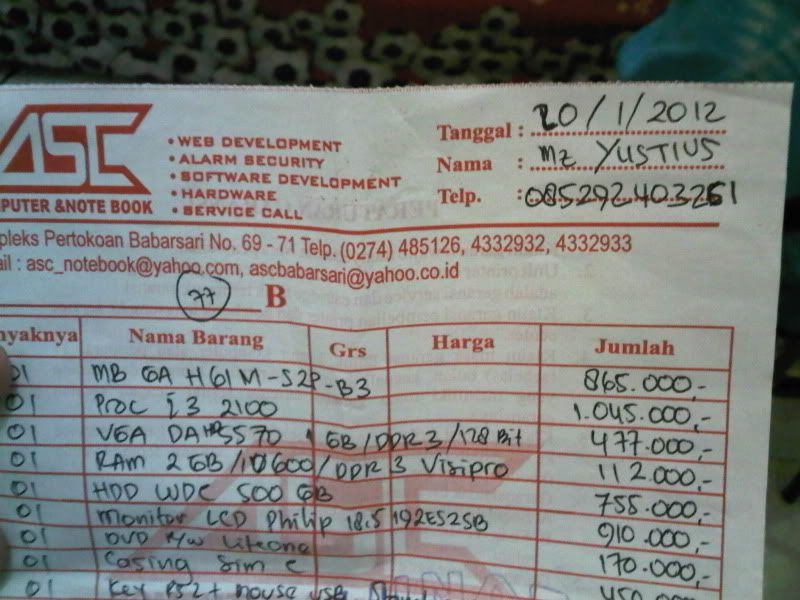 ASC
PUTER & NOTE BOOK
• WEB DEVELOPMENT
• ALARM SECURITY
• SOFTWARE DEVELOPMENT
• HARDWARE
• SERVICE CALL
Tanggal : 20/1/2012
Nama : Mz YUSTIUS
Telp. : 085292403261
pleks Pertokoan Babarsari No. 69 - 71 Telp. (0274) 485126, 4332932, 4332933
ail : asc_notebook@yahoo.com, ascbabarsari@yahoo.co.id
77 B
nyaknya Nama Barang Grs Harga Jumlah
01 MB GA H61M-S2P-B3 865.000,-
01 Proc i3 2100 1.045.000,-
01 VGA DA HD5570 1 GB/DDR3/128 Bit 477.000,-
01 RAM 2 GB/10600/DDR3 Visipro 112.000,-
01 HDD WDC 500 GB 755.000,-
01 Monitor LCD Philip 18.5 192E52SB 910.000,-
01 DVD R/W Liteone 170.000,-
01 Casing Sim C
01 Key PS2 + mouse USB